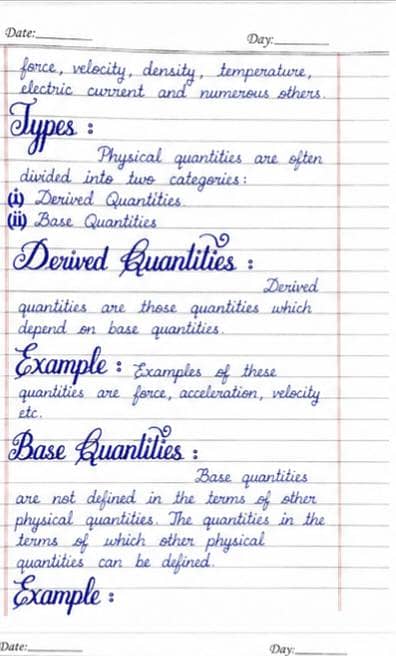 Date:________ Day:________
force, velocity, density, temperature,
electric current and numerous others.
Types :
Physical quantities are often
divided into two categories:
(i) Derived Quantities.
(ii) Base Quantities
Derived Quantities :
Derived
quantities are those quantities which
depend on base quantities.
Example : Examples of these
quantities are force, acceleration, velocity
etc.
Base Quantities :
Base quantities
are not defined in the terms of other
physical quantities. The quantities in the
terms of which other physical
quantities can be defined.
Example :
Date:________ Day:________